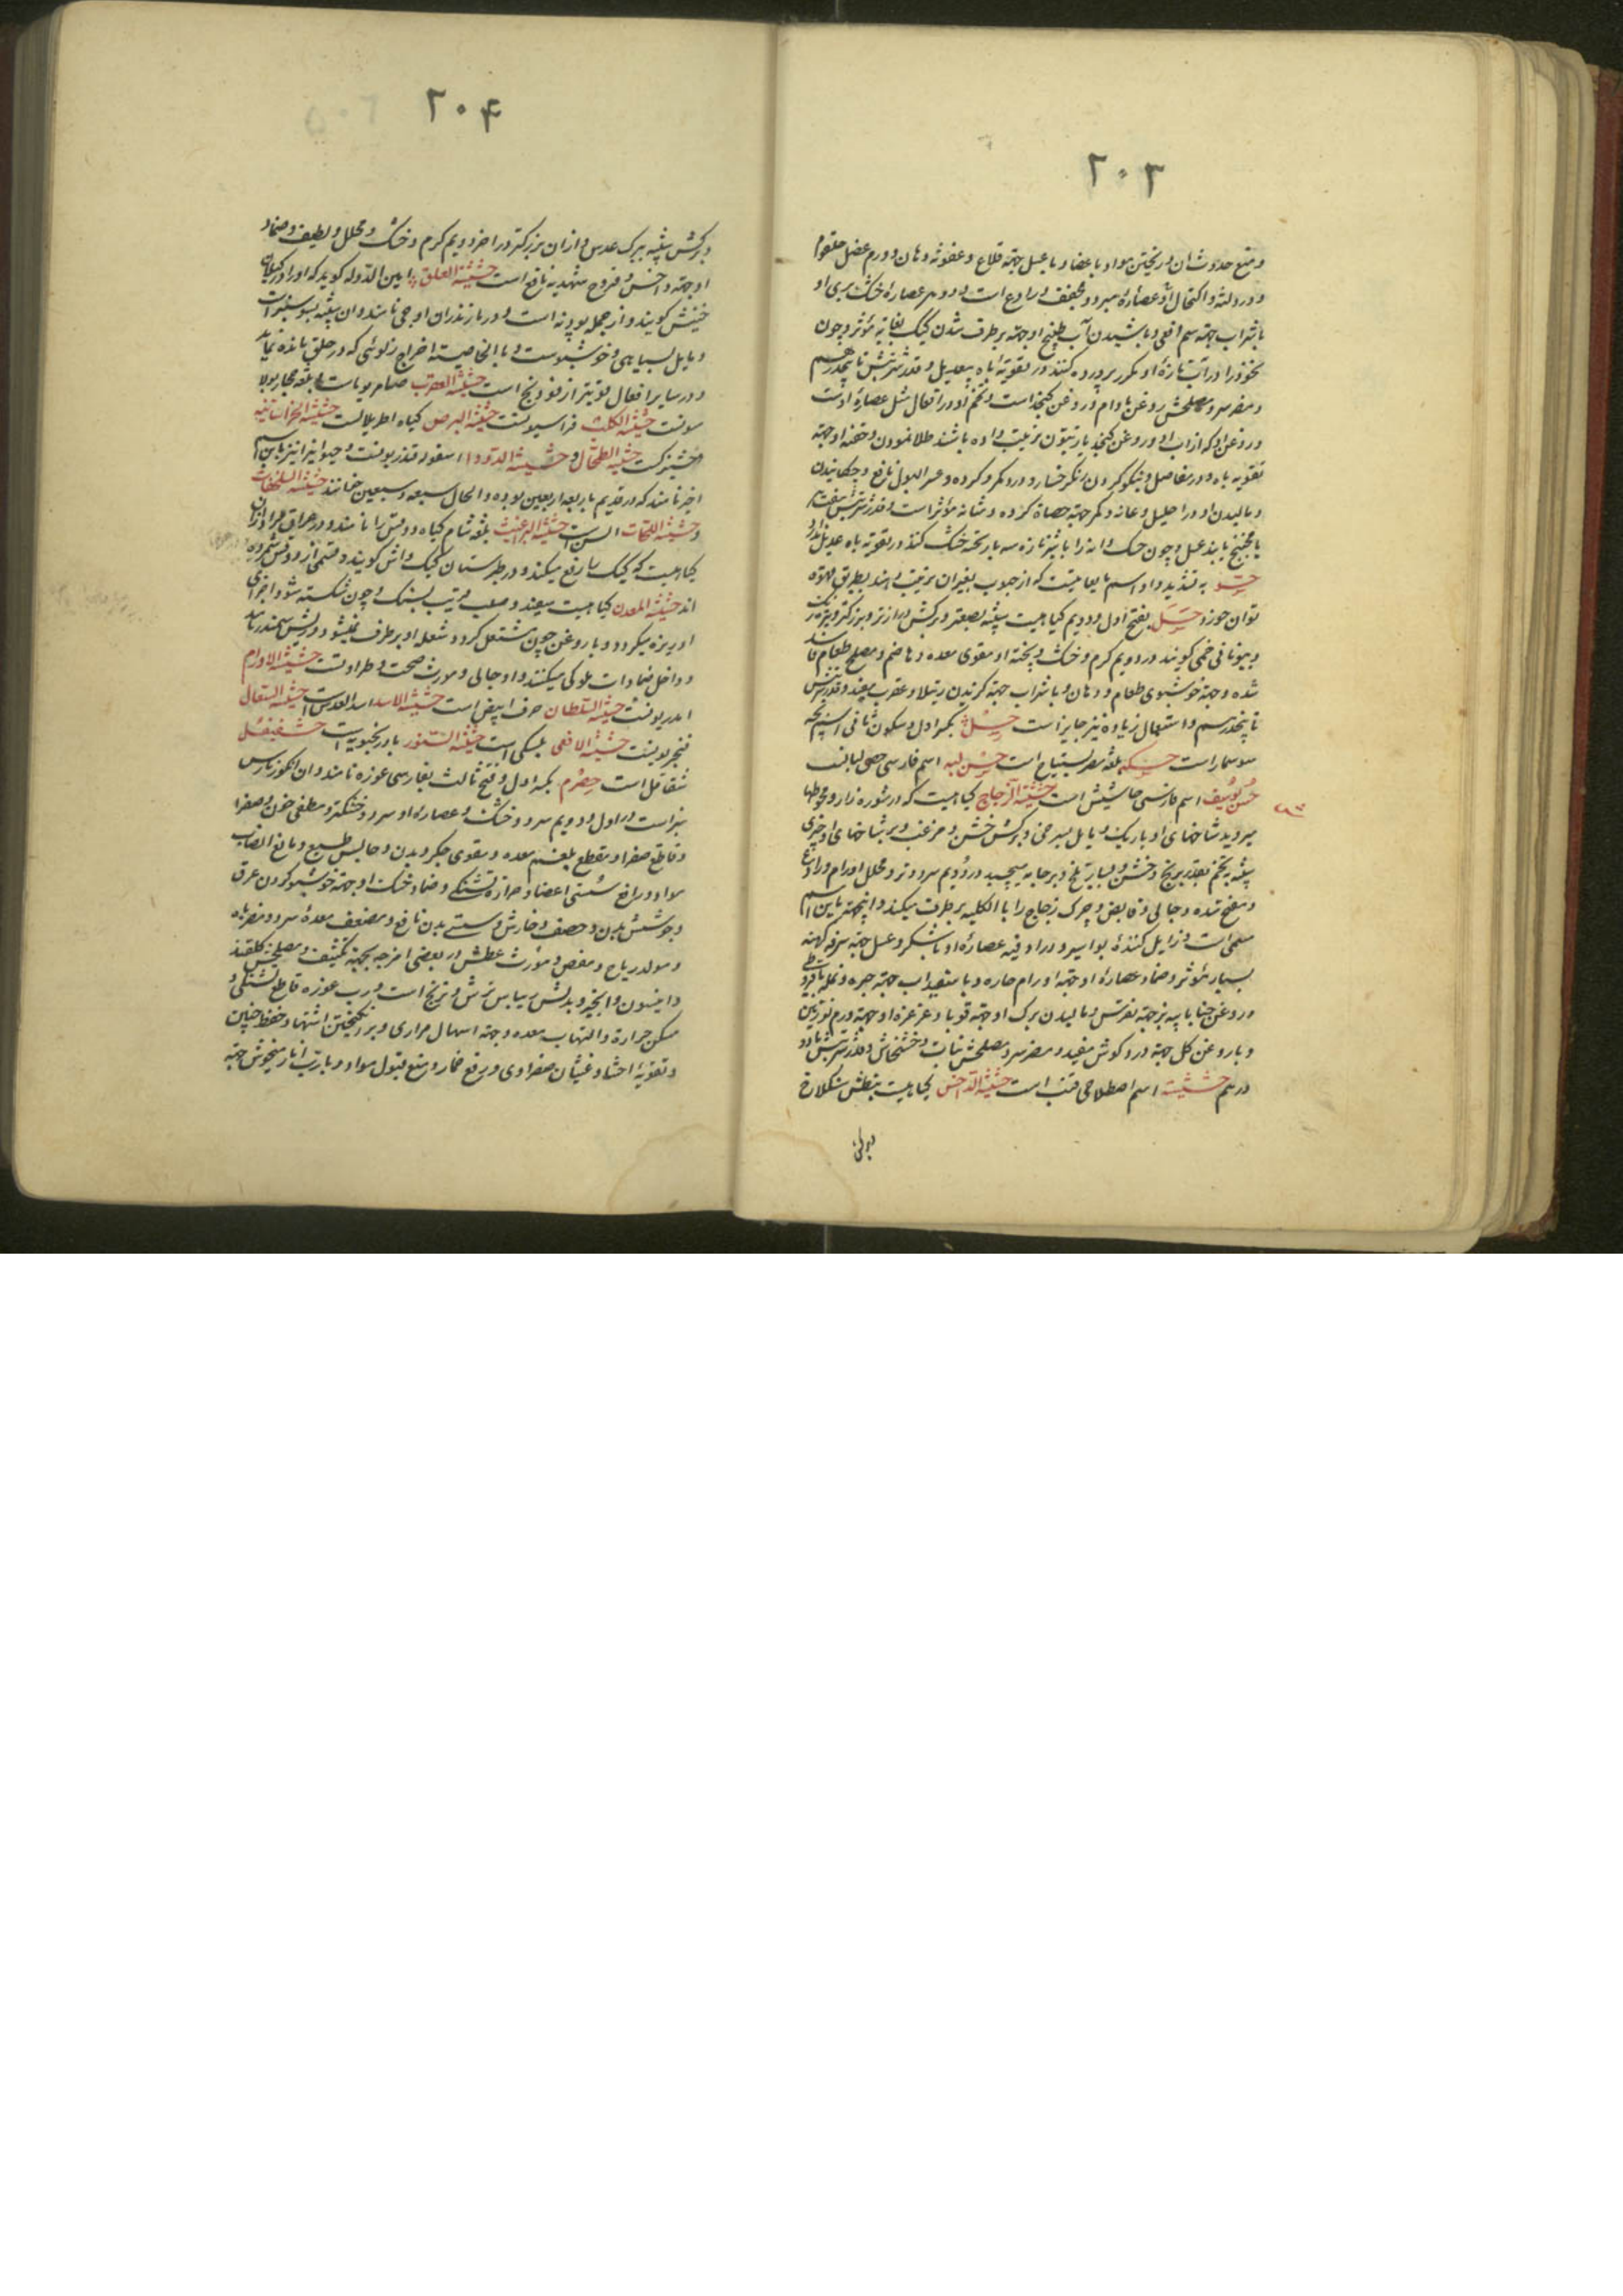 ۲۰۳
و منع حدوث آن و ریختن مواد باعضا و با عسل جهة قلاع و عفونة دهان و ورم عضل حلقوم
و درد لثه و اکتحال عصارهٔ مبرد و مجفف و رادع است و دو درهم عصارهٔ خشک بری او
با شراب جهة سم افعی و پاشیدن آب طبیخ او جهة برطرف شدن کیک بغایة مؤثر و چون
نخود را در آب تازهٔ او مکرر پرورده کنند در تقویة باه بیعدیل و قدر شربتش تا پنجدرهم
و مضر سر و مصلحش روغن بادام و روغن کنجد است و تخم او در افعال مثل عصارهٔ اوست
و روغن او که از آب او و روغن کنجد یا زیتون ترتیب داده باشند طلا نمودن و حقنهٔ او جهة
تقویة باه و درد مفاصل و نیکو کردن رنک رخسار و درد کمر و کرده و عسر البول نافع و چکانیدن
و مالیدن او در احلیل و عانه و کمر جهة حصاة کرده و مثانه مؤثر است و قدر شربتش
با میبختج یا بند عسل و چون حسک دانه را با شیر تازه سه بار تخته خشک کنند در تقویة باه عدیل ندارد
حسو به تشدید واو اسم مایعاتیست که از حبوب بغیر آن ترتیب دهند بطریق قهوه
توان خورد حسل بفتح اول و دویم کیاهیست شبیه بصعتر و برکش درازتر و بزرکتر و تیره
و بیونانی خمی کویند در دویم کرم و خشک و پختهٔ او مقوی معده و هاضم و مصلح طعام فاسد
شده و جهة خوشبوی طعام و دهان و با شراب جهة کزیدن رتیلا و عقرب مفید و قدر شربتش
تا پنجدرهم و استعمال زیاده نیز جایز است حسل بکسر اول و سکون ثانی اسم بچه
سوسمار است حسیکه بلغة مصر بستیاج است حسن لبه اسم فارسی حصی لبانست
حسن یوسف اسم فارسی حاشیش است حشیشة الزجاج کیاهیست که در شوره زار و محوطها
میروید شاخهای او باریک و مایل بسرخی و برکش خشن و مزغب و بر شاخهای او چیزی
شبیه بتخم بقدر برنج و خشن و بسیار تلخ و بر جامه میچسبد در دویم سرد و تر و محلل اورام و رادع
و مفتح سده و جالی و قابض و چرک زجاج را بالکلیه برطرف میکند و اینجهة باین اسم
مسمی است و زایل کنندهٔ بواسیر و دراوقیه عصارهٔ او با شکر و عسل جهة سرفه کهنه
بسیار مؤثر و ضماد عصارهٔ او جهة اورام حاره و با سفیداب جهة جمره و نمله نافع
و روغن حنا با پیه بز جهة نقرس و مالیدن برک او جهة قوبا و غرغرهٔ او جهة ورم لوزتین
و با روغن کل جهة درد کوش مفید و مضر سر و مصلحش نبات و خشخاش و قدر شربتش تا دو
درهم حشیشت اسم اصطلاحی قنب است حشیشة الداحس کیاهیست بنطش سنکلاخ
۲۰۴
و برکش شبیه ببرک عدس و از آن بزرکتر در آخر دویم کرم و خشک و محلل و لطیف و ضماد
او جهة داخس و قروح شهدیه نافع است حشیشة العلق امین الدوله کوید که او را در کیلان
خنیش کویند و از جمله پودنه است و در مازندران اوجی نامند و آن شبیه بسوسنبر است
و مایل بسیاهی و خوشبوست و بالخاصیة اخراج زلوئی که در حلق مانده نماید
و در سایر افعال قویتر از فودنج است حشیشة العقرب صامریوماست و بلغة مجار بولا
سونست حشیشة الکلب فراسیونست حشیشة البرص کیاه اطریلالست حشیشة الخراسانیه
خشیزکست حشیشة الطحال و حشیشة الدودا اسقولوقندریونست و حیوانیرا نیز باین اسم
اخیر نامند که در قدیم باربعه اربعین بوده و الحال سبعه و سبعین خوانند حشیشة السلحفاة
و حشیشة اللجات الوسن است حشیشة البراغیث بلغة شام کیاه دوقس را نامند و در عراق
کیاهیست که کیک را رفع میکند و در طبرستان کیک واش کویند و قسمی از دوقس شمرده
اند حشیشة المعدن کیاهیست سفید و صلب قریب بسنک و چون شکسته شود اجزای
او ریزه میکردد و با روغن چون مشتعل کردد شعله او برطرف نمیشود و ریشش سمندر باشد
و داخل ضمادات ملوکی میکنند و او جالی و مورث صحت و طراوتست حشیشة الاورام
امدریونست حشیشة السلطان حرف ابیض است حشیشة الاسد اسد العدس است حشیشة السعال
فنجریونست حشیشة الافعی بلسکی است حشیشة السنور بادرنجبویه است حشفیفل
شقاقل است حصرم بکسر اول و فتح ثالث بفارسی غوره نامند و آن انکور نارس
سبز است در اول دویم سرد و خشک و عصارهٔ او سرد و خشکتر و مطفی خون و صفرا
و قاطع صفرا و مقطع بلغم معده و مقوی جکر و بدن و حابس طبع و مانع انصباب
مواد و رافع سستی اعضا و حرارة و تشنکی و ضماد خشک او جهة خوشبو کردن عرق
و جوشش بدن و حصف و خارش و سستی بدن نافع و مضعف معدهٔ سرد و مضر باه
و مولد ریاح و مغص و مورث عطش در بعضی امزجه بجهة تکثیف و مصلحش کلقند
و انیسون و انجیر و بدلش ریباس ترش و ترنج است و رب غوره قاطع تشنکی و
مسکن حرارة و التهاب معده و جهة اسهال مراری و برانکیختن اشتها و حفظ جنین
و تقویة احشا و غثیان صفراوی و رفع خمار و منع قبول مواد و با رب انار میخوش جهة